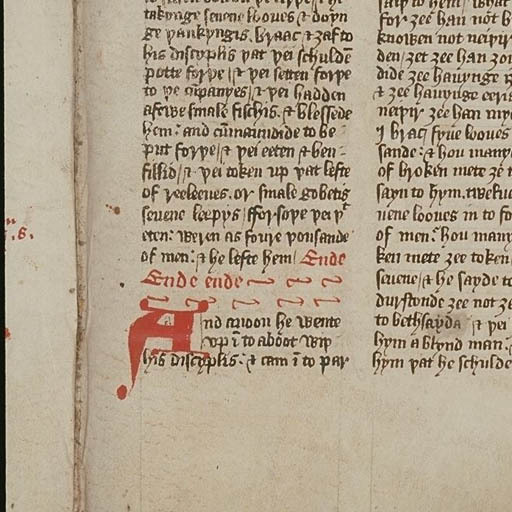 takynge seuene looues & doyn
ge þankyngis. braac & ȝaf to
his discyplis þat þei schuldē
putte forþe / & þei setten forþe
to þe cūpanyes / & þei hadden
a fewe smale fischis. & blessede
hem: and cūmaundide to be
put forþe / & þei eeten & ben
fillid / & þei token up þat lefte
of reeleeues. or smale gobetis
seuene leepys / fforsoþe þei þᵗ
eten: weren as foure þousande
of men: & he lefte hem / Ende
Ende ende
And anoon he wente
vp ī to a boot wiþ
his discyplis: & cam ī to par
saiþ to hem / what
for ȝee han not b
knowen not neiþir
den / ȝet ȝee han
dide ȝee hauynge
& ȝee hauynge eeris
neiþir ȝee han
I brac fyue looues
sande: & hou many
of broken mete ȝe
sayn to hym. twelue
uene looues in to fo
of men: hou many
ken mete ȝee token
seuene / & he sayde to
durstonde ȝee not ȝe
to bethsayda & þei
hym a blynd man:
hym þat he schulde
.8.